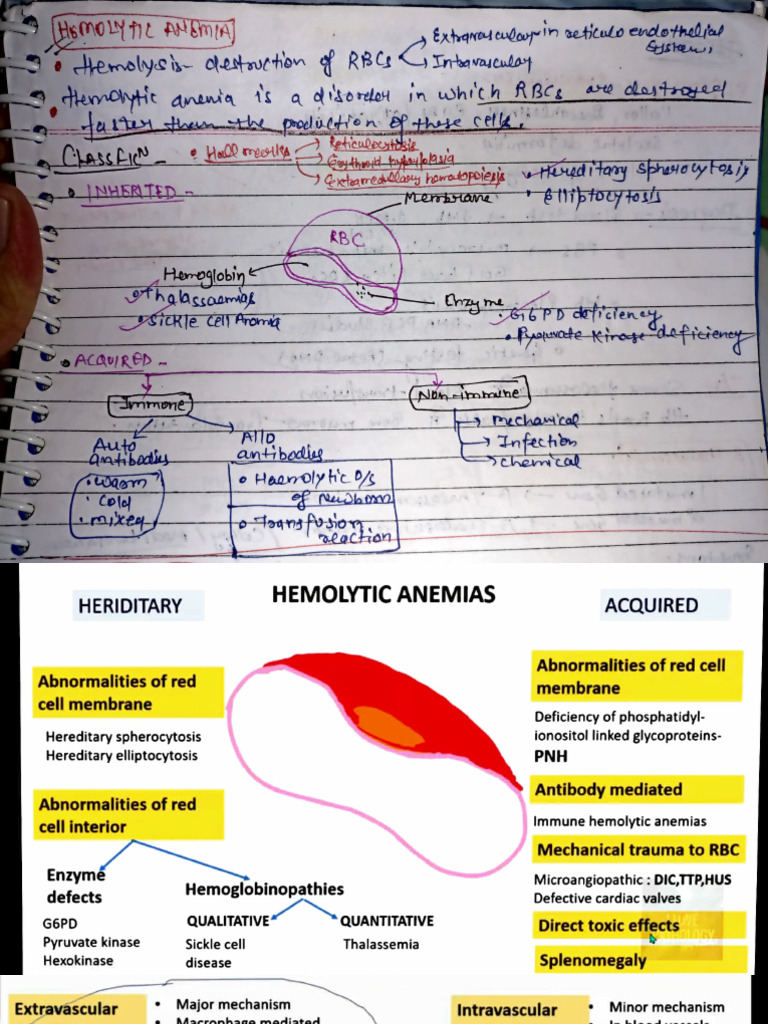 HEMOLYTIC ANEMIA
• Hemolysis- destruction of RBCs
Extravascular- in reticulo endothelial system,
Intravascular
• Hemolytic anemia is a disorder in which RBCs are destroyed
faster than the production of these cells.
CLASSFICN -
• Hallmarks
Reticulocytosis
Erythroid hyperplasia
Extramedullary hematopoiesis
• INHERITED -
• Hereditary spherocytosis
• Elliptocytosis
Membrane
RBC
Hemoglobin
• Thalassaemias
• Sickle cell Anemia
Enzyme
• G6PD deficiency
• Pyruvate Kinase deficiency
• ACQUIRED -
Immune
Non-immune
Auto antibodies
• warm
• Cold
• mixed
Allo antibodies
• Haemolytic D/s
of newborn
• Transfusion
reaction
Mechanical
Infection
chemical
HERIDITARY
HEMOLYTIC ANEMIAS
ACQUIRED
Abnormalities of red
cell membrane
Hereditary spherocytosis
Hereditary elliptocytosis
Abnormalities of red
cell interior
Enzyme
defects
G6PD
Pyruvate kinase
Hexokinase
Hemoglobinopathies
QUALITATIVE
Sickle cell
disease
QUANTITATIVE
Thalassemia
Abnormalities of red cell
membrane
Deficiency of phosphatidyl-
ionositol linked glycoproteins-
PNH
Antibody mediated
Immune hemolytic anemias
Mechanical trauma to RBC
Microangiopathic : DIC,TTP,HUS
Defective cardiac valves
Direct toxic effects
Splenomegaly
Extravascular
• Major mechanism
• Macrophage mediated
Intravascular
• Minor mechanism
• In blood vessels